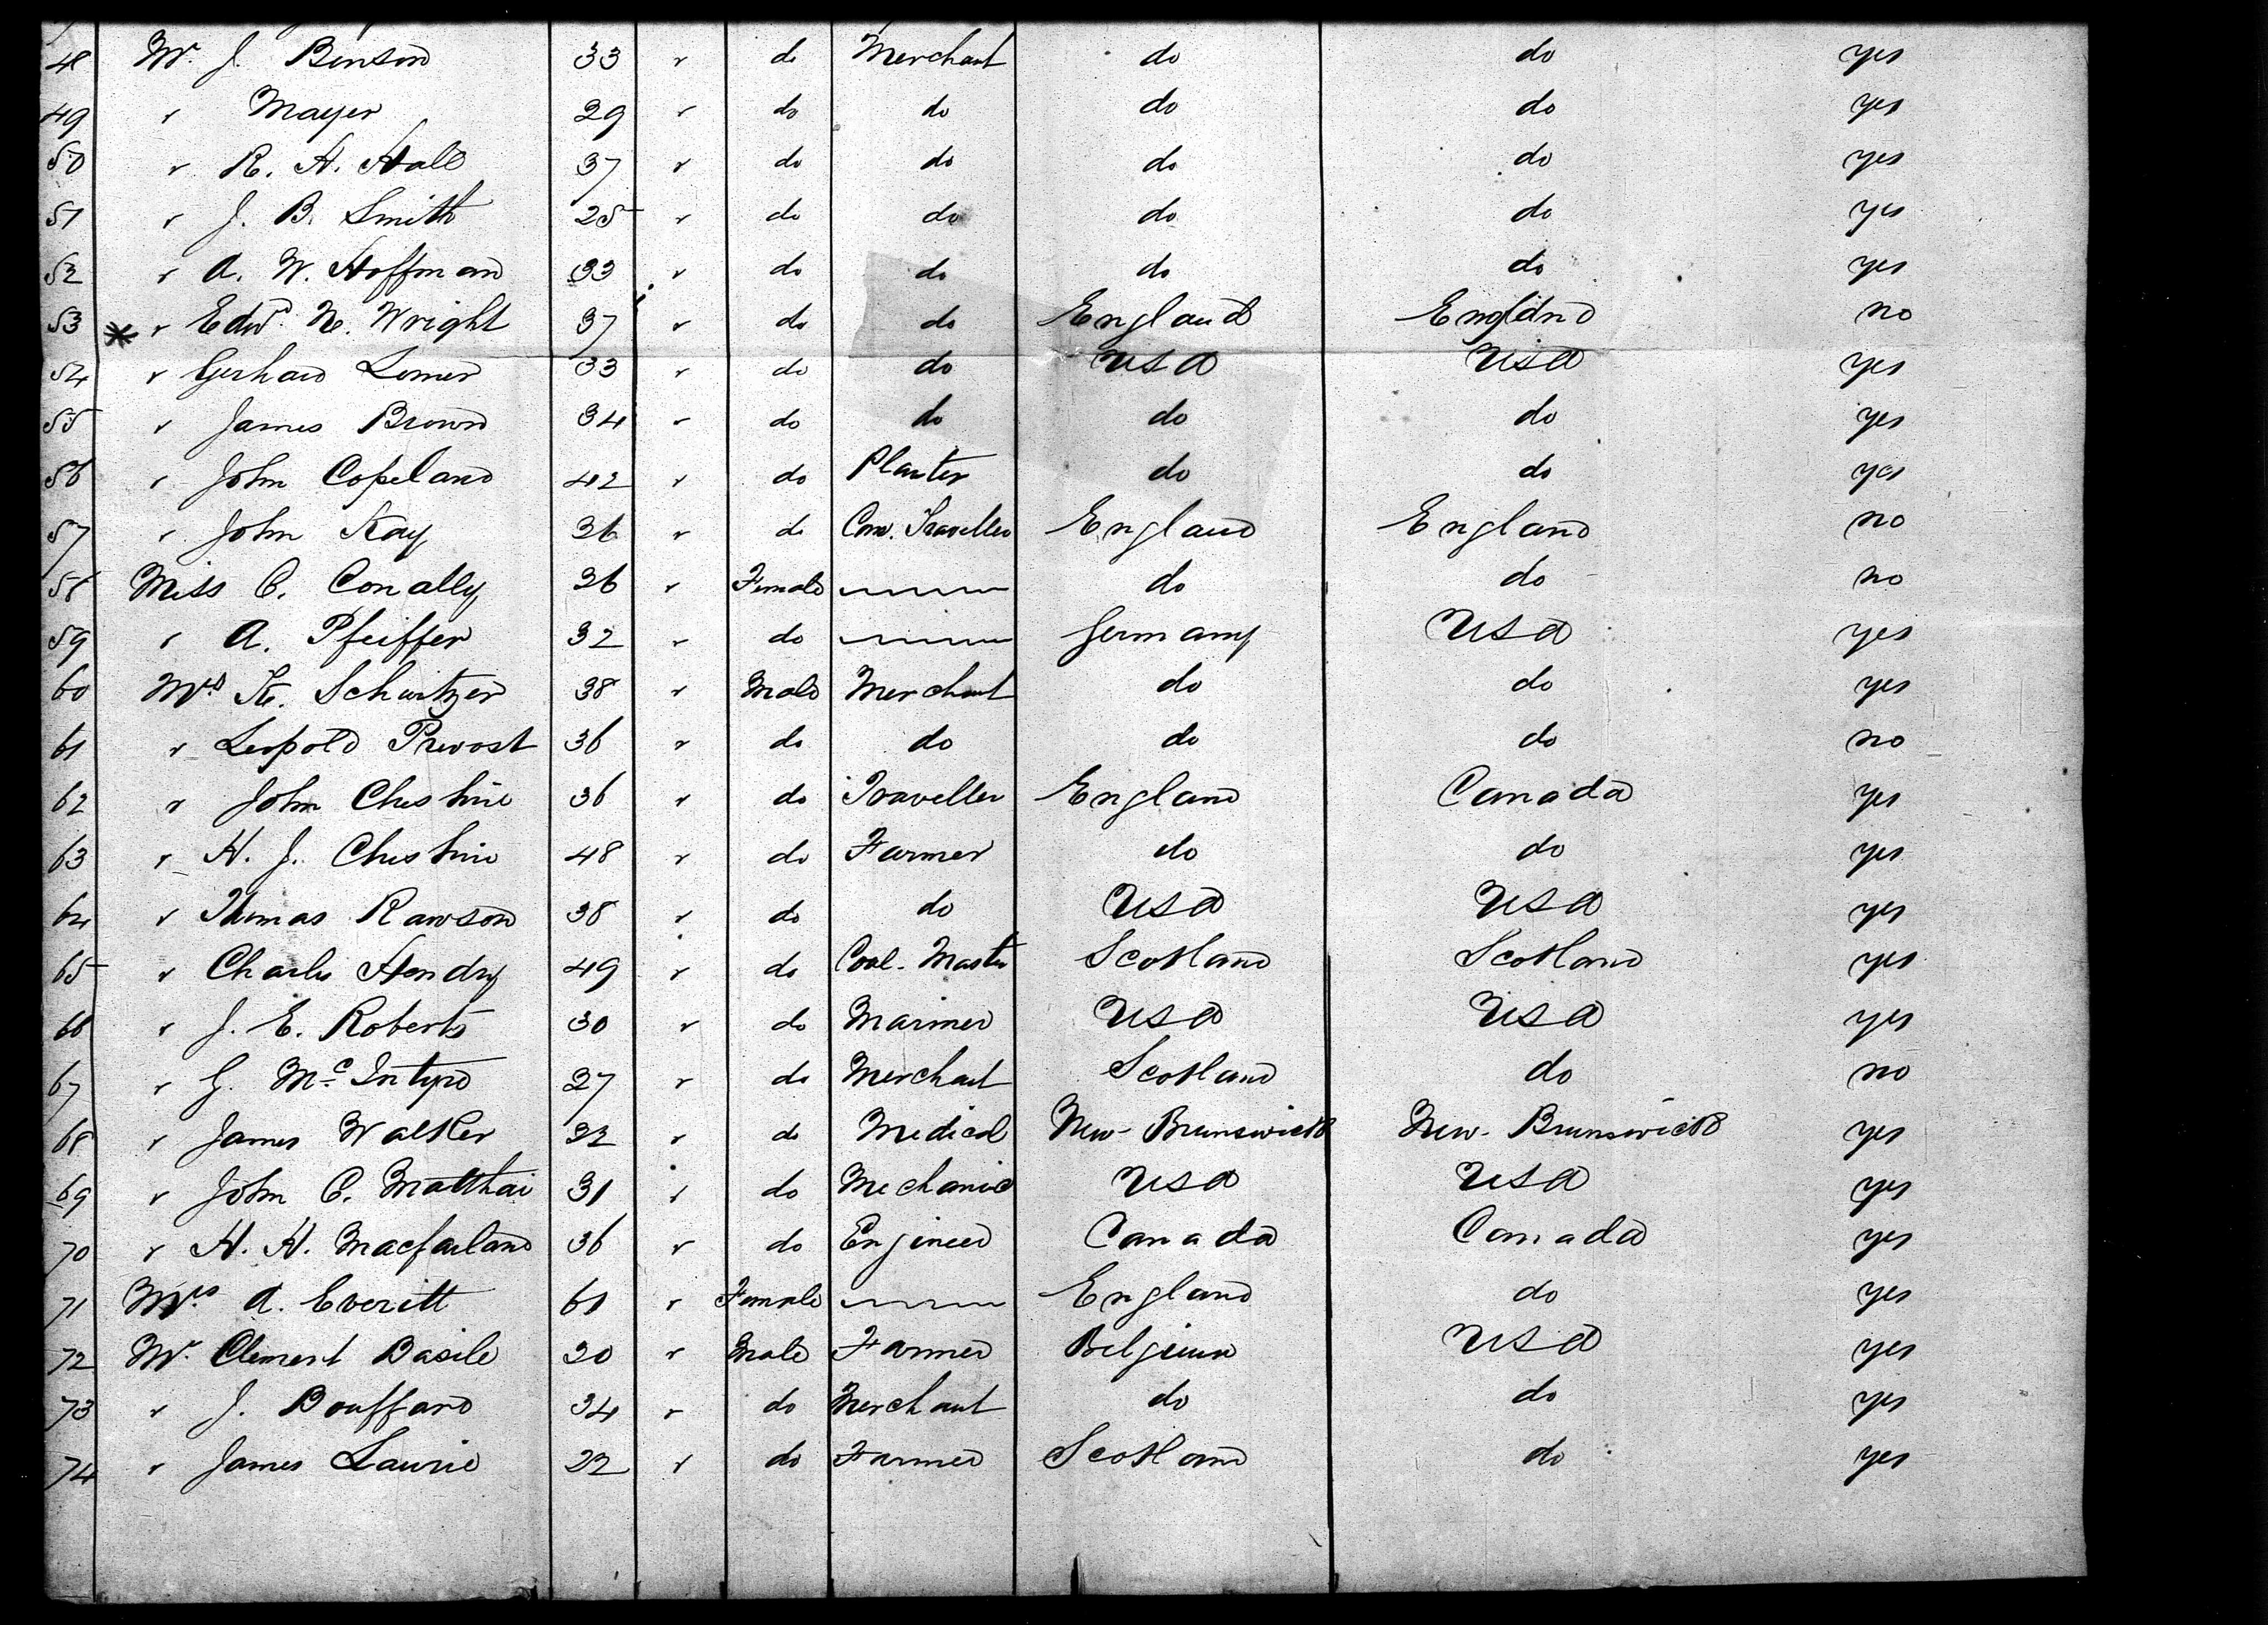 48 Mr. J. Benson 33 " do Merchant do do yes
49 " Mayer 29 " do do do do yes
50 " R. H. Hall 37 " do do do do yes
51 " J. B. Smith 25 " do do do do yes
52 " A. W. Hoffman 33 " do do do do yes
53 * " Edwd. N. Wright 37 " do do England England no
54 " Gerhard 33 " do do USA USA yes
55 " James Brown 34 " do do do do yes
56 " John Copeland 42 " do Planter do do yes
57 " John Kay 26 " do Com. Traveller England England no
58 Miss C. Conally 26 " Female do do no
59 " A. Pfeiffer 32 " do Germany USA yes
60 Mrs K. Schwitzer 38 " Male Merchant do do yes
61 " Leopold Prevost 36 " do do do do no
62 " John Cheshire 36 " do Traveller England Canada yes
63 " H. J. Cheshire 48 " do Farmer do do yes
64 " Thomas Rawson 38 " do do USA USA yes
65 " Charles Hendry 49 " do Coal-Master Scotland Scotland yes
66 " J. E. Roberts 30 " do Mariner USA USA yes
67 " G. McIntyre 27 " do Merchant Scotland do no
68 " James Walker 32 " do Medical New-Brunswick New-Brunswick yes
69 " John C. Matthai 31 " do Mechanic USA USA yes
70 " H. H. Macfarland 36 " do Engineer Canada Canada yes
71 Mrs A. Everitt 61 " Female England do yes
72 Mr. Clement Basile 30 " Male Farmer Belgium USA yes
73 " J. Bouffard 34 " do Merchant do do yes
74 " James Laurie 22 " do Farmer Scotland do yes